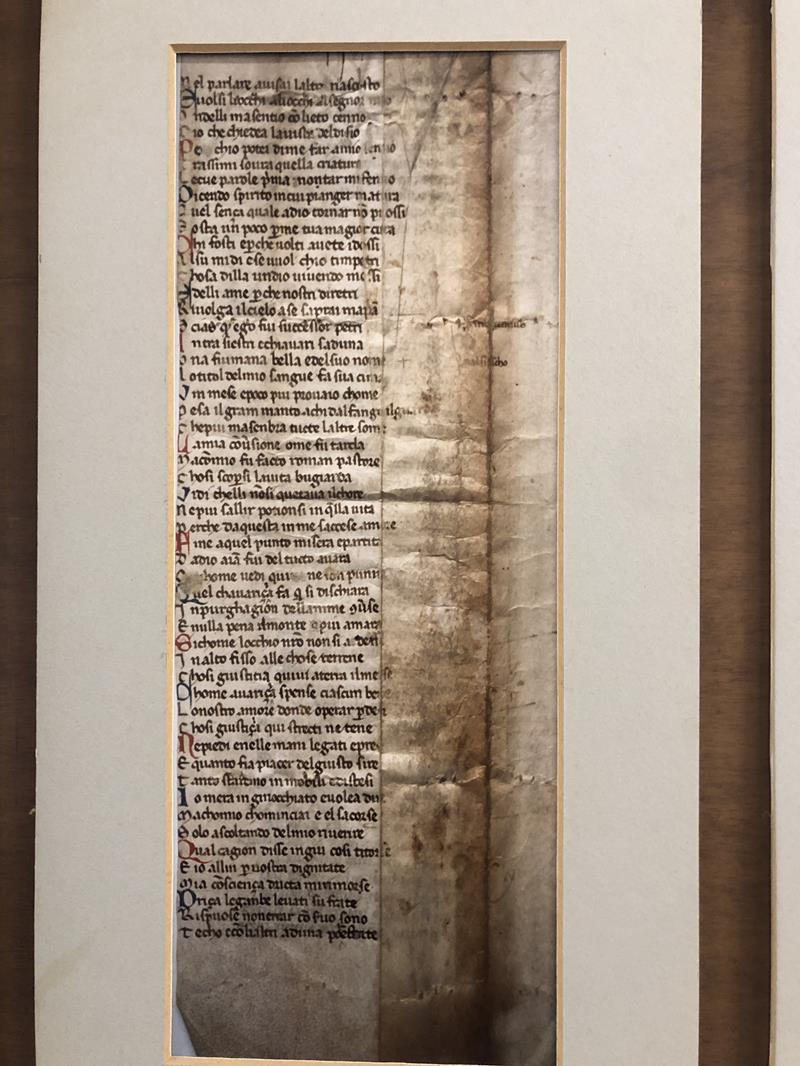 Nel parlare auisai laltro nascosto
Et uolsi liocchi aliocchi alsegnor mio
Ondelli masentio cō lieto cenno
Cio che chiedea lauista deldisio
Po chio potei dime far amio senno
Trassimi soura quella criatura
Lecue parole pͥma notar mi fenno
Dicendo spirito incui pianger matura
Quel sença quale adio tornar nō possi
Sosta un poco ꝑme tua magior cura
Chi fosti eꝑche uolti auete idossi
Alsu midi ese uuol chio timpetri
Chosa dilla undio uiuendo mossi
Edelli ame ꝑche nostri diretri
Riuolga ilcielo ase saprai ma pͥa
Scias qͥ ego fui successor petri
Intra siestri echiauari saduna
Una fiumana bella edelsuo nome
Lo titol delmio sangue fa sua cima
Un mese epoco piu prouaio chome
Pesa il gram manto achi dalfango ilguarda
Che piu masenbra tucte laltre some
La mia cōuͥsione ome fu tarda
Ma cōmio fu facto roman pastore
Chosi scopͥsi lauita bugiarda
Vidi chelli nōsi quetaua ilchore
Ne piu sallir potionsi in qͣlla uita
Perche daquesta in me saccese amore
Fine aquel punto misera epartita
Dadio aīa fui del tucto auara
Or chome uedi qui ne son punita
Quel chauariça fa qͥ si dischiara
In purghagion dellanime ꝯuͥse
E nulla pena ilmonte a piu amara
Sichome locchio nr̄o non si aderse
In alto fisso alle chose terrene
Chosi giustitia quiui aterra ilmerse
Chome auariça spense ciascun bene
Lo nostro amore donde operar ꝑdesi
Chosi giustiça qui strecti ne tene
Nepiedi enelle mani legati epresi
E quanto fia piacer delgiusto sire
Tanto staremo inmobili edistesi
Io mera inginocchiato euolea dire
Ma chomio chominciai e el sacorse
Solo ascoltando delmio riuerire
Qual cagion disse ingiu cosi titorse
E io allui ꝑ uostra dignitate
Mia cōsciença dricta mirimorse
Driça legambe leuati su frate
Rispuose non errar cōseruo sono
Techo ecōlialtri aduna podestate